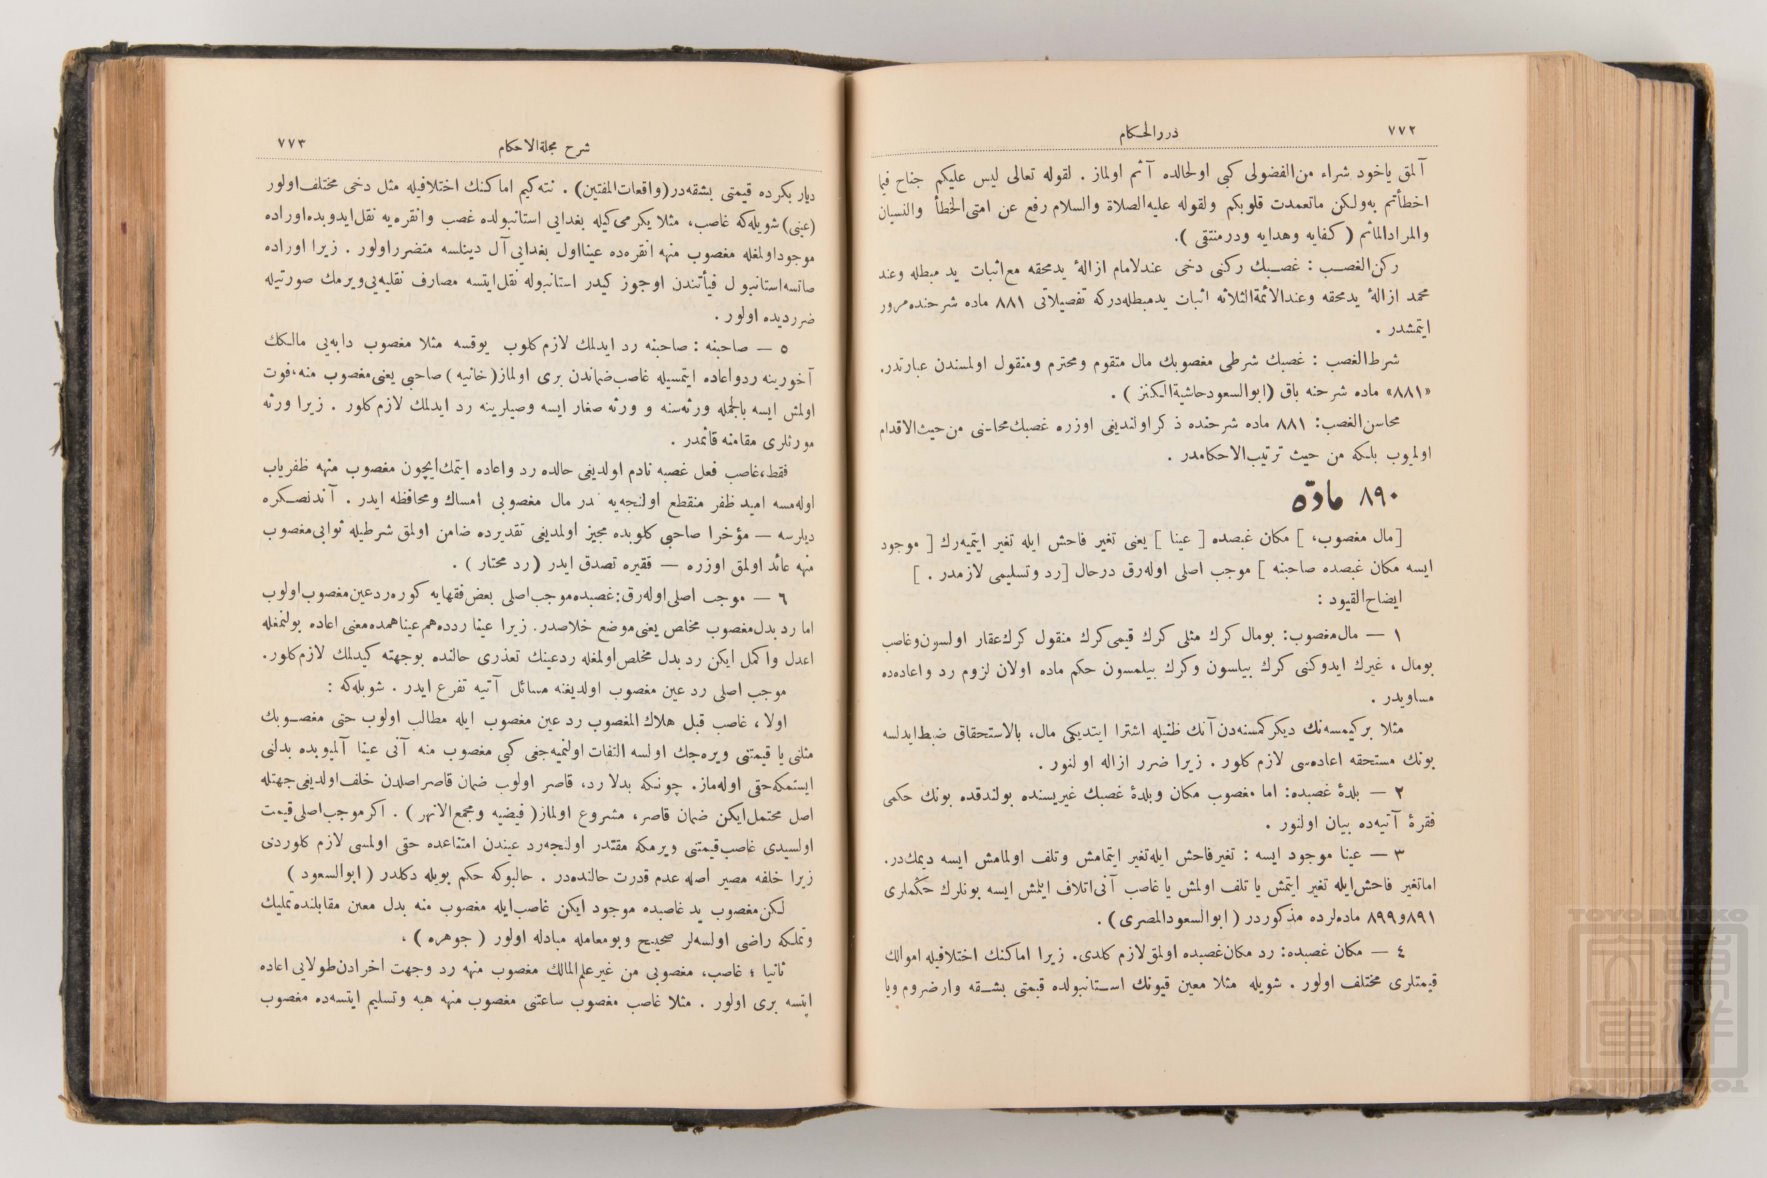 ٧٧٢
دررالحكام
آلمق ياخود شراء من‌الفضولى كبى اولحالده آثم اولماز . لقوله تعالى ليس عليكم جناح فيما
اخطأتم به ولكن ماتعمدت قلوبكم ولقوله عليه‌الصلاة والسلام رفع عن امتى‌الخطأ والنسيان
والمرادالمأثم ( كفايه وهدايه ودرمنتقى ).
ركن‌الغصب : غصبك ركنى دخى عندلامام ازالهٔ يدمحقه مع‌اثبات يد مبطله وعند
محمد ازالهٔ يدمحقه وعندالأئمة‌الثلاثه اثبات يدمبطله‌دركه تفصيلاتى ٨٨١ ماده شرحنده‌مرور
ايتمشدر .
شرط‌الغصب : غصبك شرطى مغصوبك مال متقوم ومحترم ومنقول اولمسندن عبارتدر.
«٨٨١» ماده شرحنه باق (ابوالسعودحاشية‌الكنز ) .
محاسن‌الغصب: ٨٨١ ماده شرحنده ذكراولنديغى اوزره غصبك‌محاسنى من‌حيث‌الاقدام
اولميوب بلكه من حيث ترتيب‌الاحكامدر .
٨٩٠ مادّه
[مال مغصوب، ] مكان غصبده [ عينا ] يعنى تغير فاحش ايله تغير ايتميه‌رك [ موجود
ايسه مكان غصبده صاحبنه ] موجب اصلى اوله‌رق درحال [رد وتسليمى لازمدر . ]
ايضاح‌القيود :
١ — مال‌مغصوب: بومال كرك مثلى كرك قيمى‌كرك منقول كرك‌عقار اولسون‌وغاصب
بومال ، غيرك ايدوكنى كرك بيلسون وكرك بيلمسون حكم ماده اولان لزوم رد واعاده‌ده
مساويدر .
مثلا بركيمسه‌نك ديكركمسنه‌دن‌آنك ظنيله اشترا ايتديكى مال، بالاستحقاق ضبط‌ايدلسه
بونك مستحقه اعاده‌سى لازم كلور . زيرا ضرر ازاله اولنور .
٢ — بلدهٔ غصبده: اما مغصوب مكان وبلدهٔ غصبك غيريسنده بولندقده بونك حكمى
فقرهٔ آتيه‌ده بيان اولنور .
٣ — عينا موجود ايسه : تغيرفاحش ايله‌تغير ايتمامش وتلف اولمامش ايسه ديمك‌در.
اماتغير فاحش‌ايله تغير ايتمش يا تلف اولمش يا غاصب آنى‌اتلاف ايلمش ايسه بونلرك حكملرى
٨٩١و٨٩٩ ماده‌لرده مذكوردر ( ابوالسعودالمصرى ) .
٤ — مكان غصبده: رد مكان‌غصبده اولمق‌لازم كلدى. زيرا اماكنك اختلافيله اموالك
قيمتلرى مختلف اولور . شويله مثلا معين قيونك استانبولده قيمتى بشقه وارضروم ويا
شرح مجلة‌الاحكام
٧٧٣
ديار بكرده قيمتى بشقه‌در(واقعات‌المفتين) . نته‌كيم اماكنك اختلافيله مثل دخى مختلف‌اولور
(عينى) شويله‌كه غاصب، مثلا يكرمى‌كيله بغدايى استانبولده غصب وانقره‌يه نقل‌ايدوبده‌اوراده
موجوداولمغله مغصوب منهه انقره‌ده عينااول بغدايى‌آل دينلسه متضرراولور . زيرا اوراده
صاتسه‌استانبول فيأتندن اوجوز كيدر استانبوله نقل‌ايتسه مصارف نقليه‌يى‌ويرمك صورتيله
ضررديده اولور .
٥ — صاحبنه : صاحبنه رد ايدلمك لازم‌كلوب يوقسه مثلا مغصوب دابه‌يى مالكك
آخورينه ردواعاده ايتمسيله غاصب‌ضماندن برى اولماز(خانيه ) صاحبى يعنى‌مغصوب منه،فوت
اولمش ايسه بالجمله ورثه‌سنه و ورثه صغار ايسه وصيلرينه رد ايدلمك لازم‌كلور . زيرا ورثه
مورثلرى مقامنه قائمدر .
فقط،غاصب فعل غصبه نادم اولديغى حالده رد واعاده ايتمك‌ايچون مغصوب منهه ظفرياب
اوله‌مسه اميد ظفر منقطع اولنجه‌يه قدر مال مغصوبى امساك ومحافظه ايدر . آندنصكره
ديلرسه — مؤخرا صاحبى كلوبده مجيز اولمديغى تقديرده ضامن اولمق شرطيله ثوابى‌مغصوب
منهه عائد اولمق اوزره — فقيره تصدق ايدر (رد محتار ) .
٦ — موجب اصلى‌اوله‌رق:غصبده‌موجب‌اصلى بعض‌فقهايه كوره‌ردعين‌مغصوب‌اولوب
اما رد بدل‌مغصوب مخلص يعنى‌موضع خلاصدر. زيرا عينا ردده‌هم‌عيناهم‌ده‌معنى اعاده بولنمغله
اعدل واكمل ايكن رد بدل مخلص‌اولمغله ردعينك تعذرى حالنده بوجهته كيدلمك لازم‌كلور.
موجب اصلى رد عين مغصوب اولديغنه مسائل آتيه تفرع ايدر . شويله‌كه :
اولا ، غاصب قبل هلاك المغصوب رد عين مغصوب ايله مطالب اولوب حتى مغصوبك
مثلنى يا قيمتنى ويره‌جك اولسه التفات اولنميه‌جغى كبى مغصوب منه آنى عينا آلميوبده بدلنى
ايستمكه‌حقى اوله‌ماز. چونكه بدلا رد، قاصر اولوب ضمان قاصراصلدن خلف‌اولديغى‌جهتله
اصل محتمل‌ايكن ضمان قاصر، مشروع اولماز( فيضيه ومجمع‌الانهر ) . اكرموجب‌اصلى‌قيمت
اولسيدى غاصب‌قيمتنى ويرمكه مقتدر اولنجه‌رد عيندن امتناعده حقى اولمسى لازم كلوردى
زيرا خلفه مصير اصله عدم قدرت حالنده‌در . حالبوكه حكم بويله دكلدر ( ابوالسعود )
لكن‌مغصوب يد غاصبده موجود ايكن غاصب‌ايله مغصوب منه بدل معين مقابلنده‌تمليك
وتملكه راضى اولسه‌لر صحيح وبومعامله مبادله اولور ( جوهره ) .
ثانيا ؛ غاصب، مغصوبى من غيرعلم‌المالك مغصوب منهه رد وجهت اخرادن‌طولايى اعاده
ايتسه برى اولور . مثلا غاصب مغصوب ساعتى مغصوب منهه هبه وتسليم ايتسه‌ده مغصوب
TOYO BUNKO